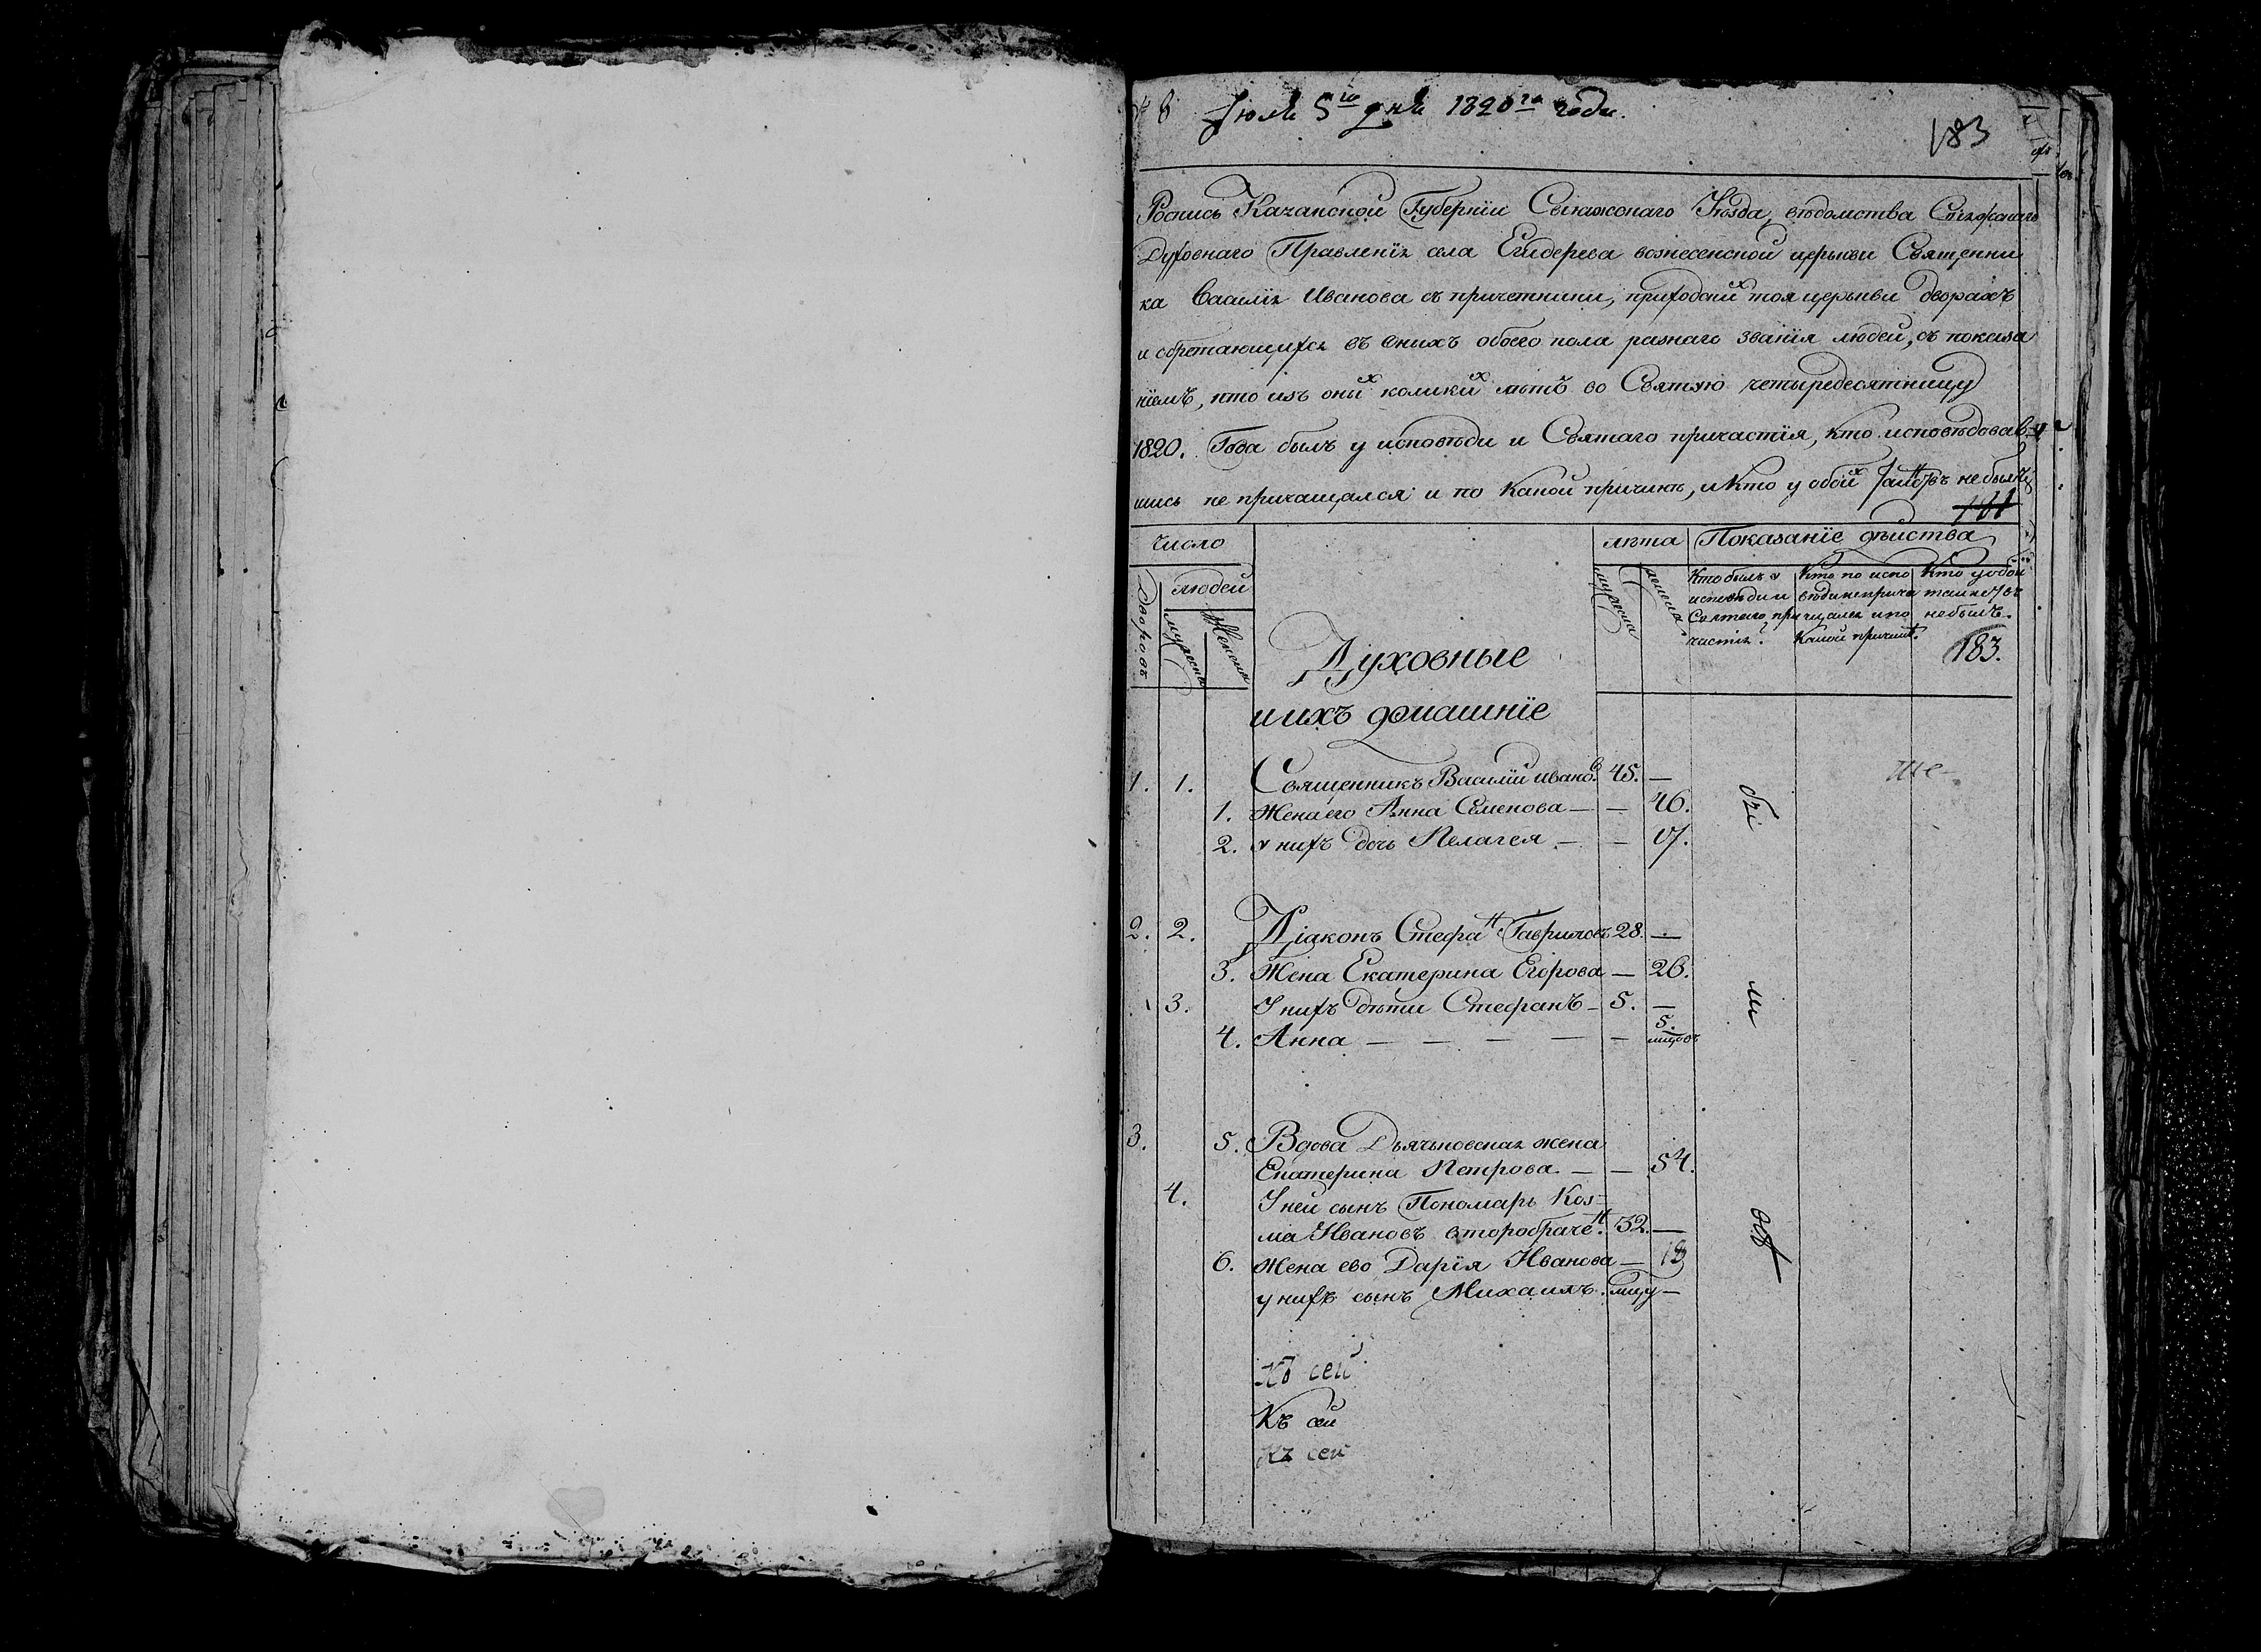 № 8 Июля 5го дня 1820го года.
183
Роспись Казанской Губернїи Свїяжскаго Уѣзда, вѣдомства Свїяжскаго
Духовнаго Правленїя села Егидерева вознесенской церькви Священни
ка Василїя Иванова съ причетники, приходскихъ тоя церькви дворахъ
и обретающихся въ онихъ обоего пола разнаго званїя людей, съ показа
нїемъ, кто изъ оныхъ коликихъ лѣтъ во Святую четыредесятницу
1820. Года былъ у исповѣди и Святаго причастїя, кто исповѣдовав
шись не причащался и по какой причинѣ, и кто у обоихъ таинствъ небылъ
число
лѣта Показанїе дѣйства
Дворовъ
людей
мужеска
Женска
мужеска
женска
Кто былъ у исповѣди и Святаго причастїя.
Кто по исповѣди непричащался и по какой причинѣ.
Кто у обоихъ таинствъ небылъ.
183.
Духовные
и ихъ домашнїе
1. 1. Священникъ Василїй Ивановъ 45. —
1. Жена его Анна Семенова — — 46.
2. у нихъ дочь Пелагея — — 07.
2. 2. Дїаконъ Стефанъ Гавриловъ 28. —
3. Жена Екатерина Егорова — 26.
3. У нихъ дѣти Стефанъ — 5. —
4. Анна — — — — — 5. мцовъ
3. 5. Вдова Дьячьковская жена
Екатерина Петрова — — 54.
4. У ней сынъ Пономарь Коз-
ма Ивановъ второбрачн. 32. —
6. Жена ево Дарїя Иванова —
у нихъ сынъ Михаилъ. —
были
у
Къ сей
Къ сей
Къ сей